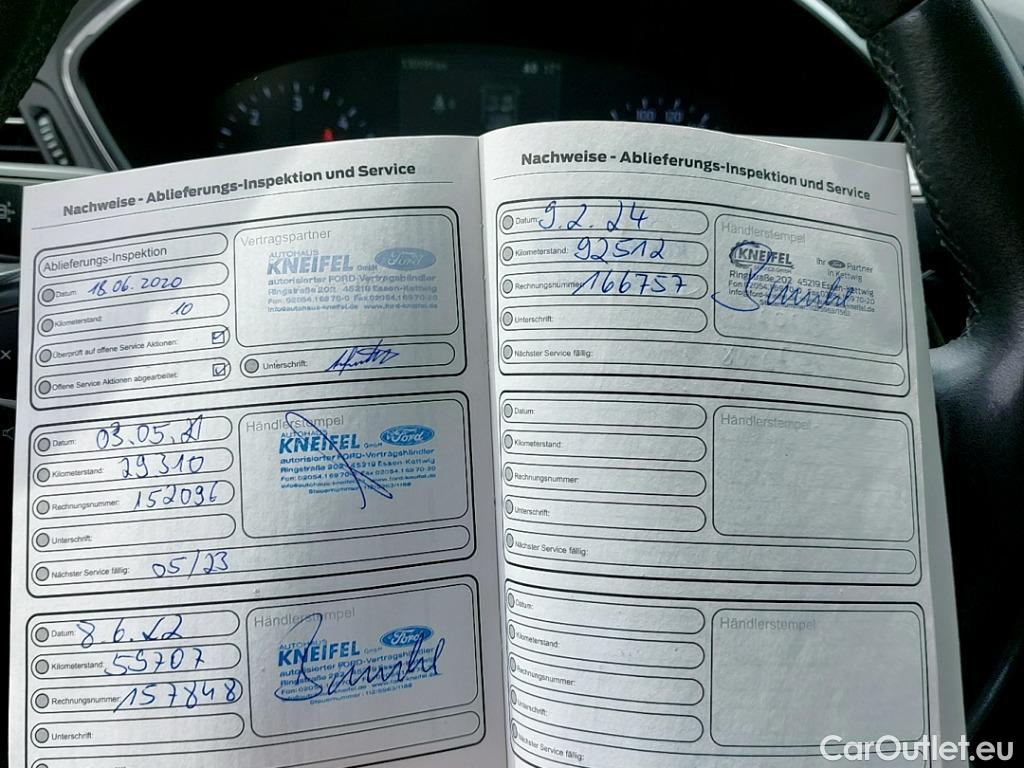 Nachweise - Ablieferungs-Inspektion und Service
Ablieferungs-Inspektion
Datum: 18.06.2020
Kilometerstand: 10
Überprüft auf offene Service Aktionen:
Offene Service Aktionen abgearbeitet:
Vertragspartner
AUTOHAUS
KNEIFEL GmbH Ford
autorisierter FORD-Vertragshändler
Ringstraße 202, 45219 Essen-Kettwig
Fon: 02054.1 69 70-0 Fax 02054.1 69 70-20
info@autohaus-kneifel.de www.ford-kneifel.de
Unterschrift:
Datum: 03.05.21
Kilometerstand: 29310
Rechnungsnummer: 152096
Unterschrift:
Nächster Service fällig: 05/23
Händlerstempel
AUTOHAUS
KNEIFEL GmbH Ford
autorisierter FORD-Vertragshändler
Ringstraße 202, 45219 Essen-Kettwig
Fon: 02054.1 69 70 Fax 02054.1 69 70-20
info@autohaus-kneifel.de www.ford-kneifel.de
Steuernummer: 112/5963/1188
Datum: 8.6.22
Kilometerstand: 59707
Rechnungsnummer: 157848
Unterschrift:
Händlerstempel
AUTOHAUS
KNEIFEL GmbH Ford
autorisierter FORD-Vertragshändler
Ringstraße 202, 45219 Essen-Kettwig
Steuernummer: 112/5963/1188
Nachweise - Ablieferungs-Inspektion und Service
Datum: 9.2.24
Kilometerstand: 92512
Rechnungsnummer: 166757
Unterschrift:
Nächster Service fällig:
Händlerstempel
KNEIFEL
Ihr Ford Partner
in Kettwig
Ringstraße 202, 45219 Essen-Kettwig
Datum:
Kilometerstand:
Rechnungsnummer:
Unterschrift:
Nächster Service fällig:
Händlerstempel
Datum:
Kilometerstand:
Rechnungsnummer:
Unterschrift:
Nächster Service fällig:
Händlerstempel
2 3 4
100 120
CarOutlet.eu